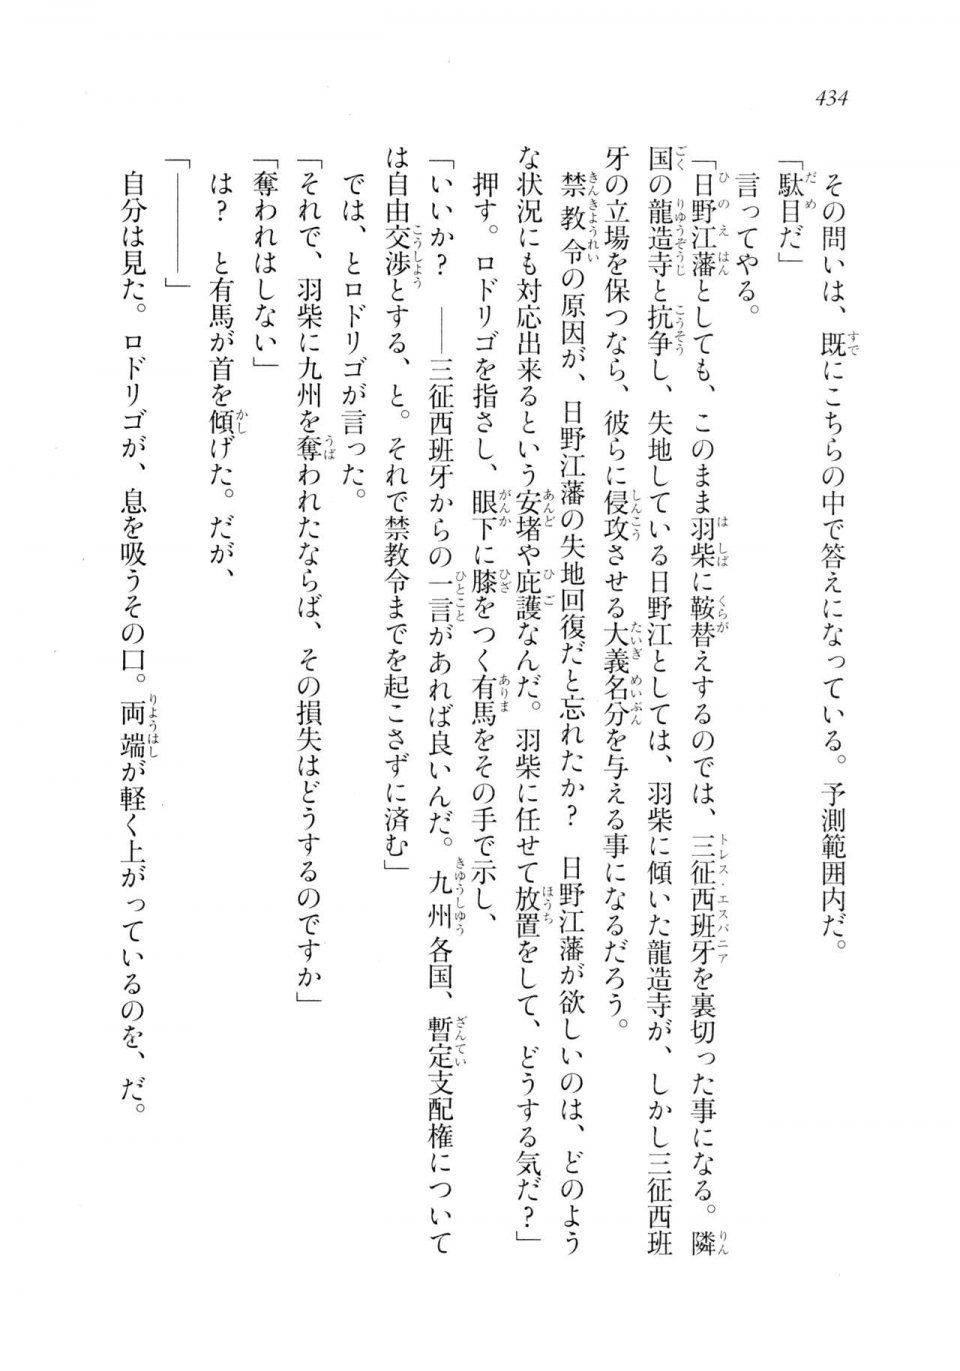 434
その問いは、既にこちらの中で答えになっている。予測範囲内だ。
「駄目だ」
言ってやる。
「日野江藩としても、このまま羽柴に鞍替えするのでは、三征西班牙を裏切った事になる。隣
国の龍造寺と抗争し、失地している日野江としては、羽柴に傾いた龍造寺が、しかし三征西班
牙の立場を保つなら、彼らに侵攻させる大義名分を与える事になるだろう。
禁教令の原因が、日野江藩の失地回復だと忘れたか？　日野江藩が欲しいのは、どのよう
な状況にも対応出来るという安堵や庇護なんだ。羽柴に任せて放置をして、どうする気だ？」
押す。ロドリゴを指さし、眼下に膝をつく有馬をその手で示し、
「いいか？　――三征西班牙からの一言があれば良いんだ。九州各国、暫定支配権について
は自由交渉とする、と。それで禁教令までを起こさずに済む」
では、とロドリゴが言った。
「それで、羽柴に九州を奪われたならば、その損失はどうするのですか」
「奪われはしない」
は？　と有馬が首を傾げた。だが、
「――――」
自分は見た。ロドリゴが、息を吸うその口。両端が軽く上がっているのを、だ。